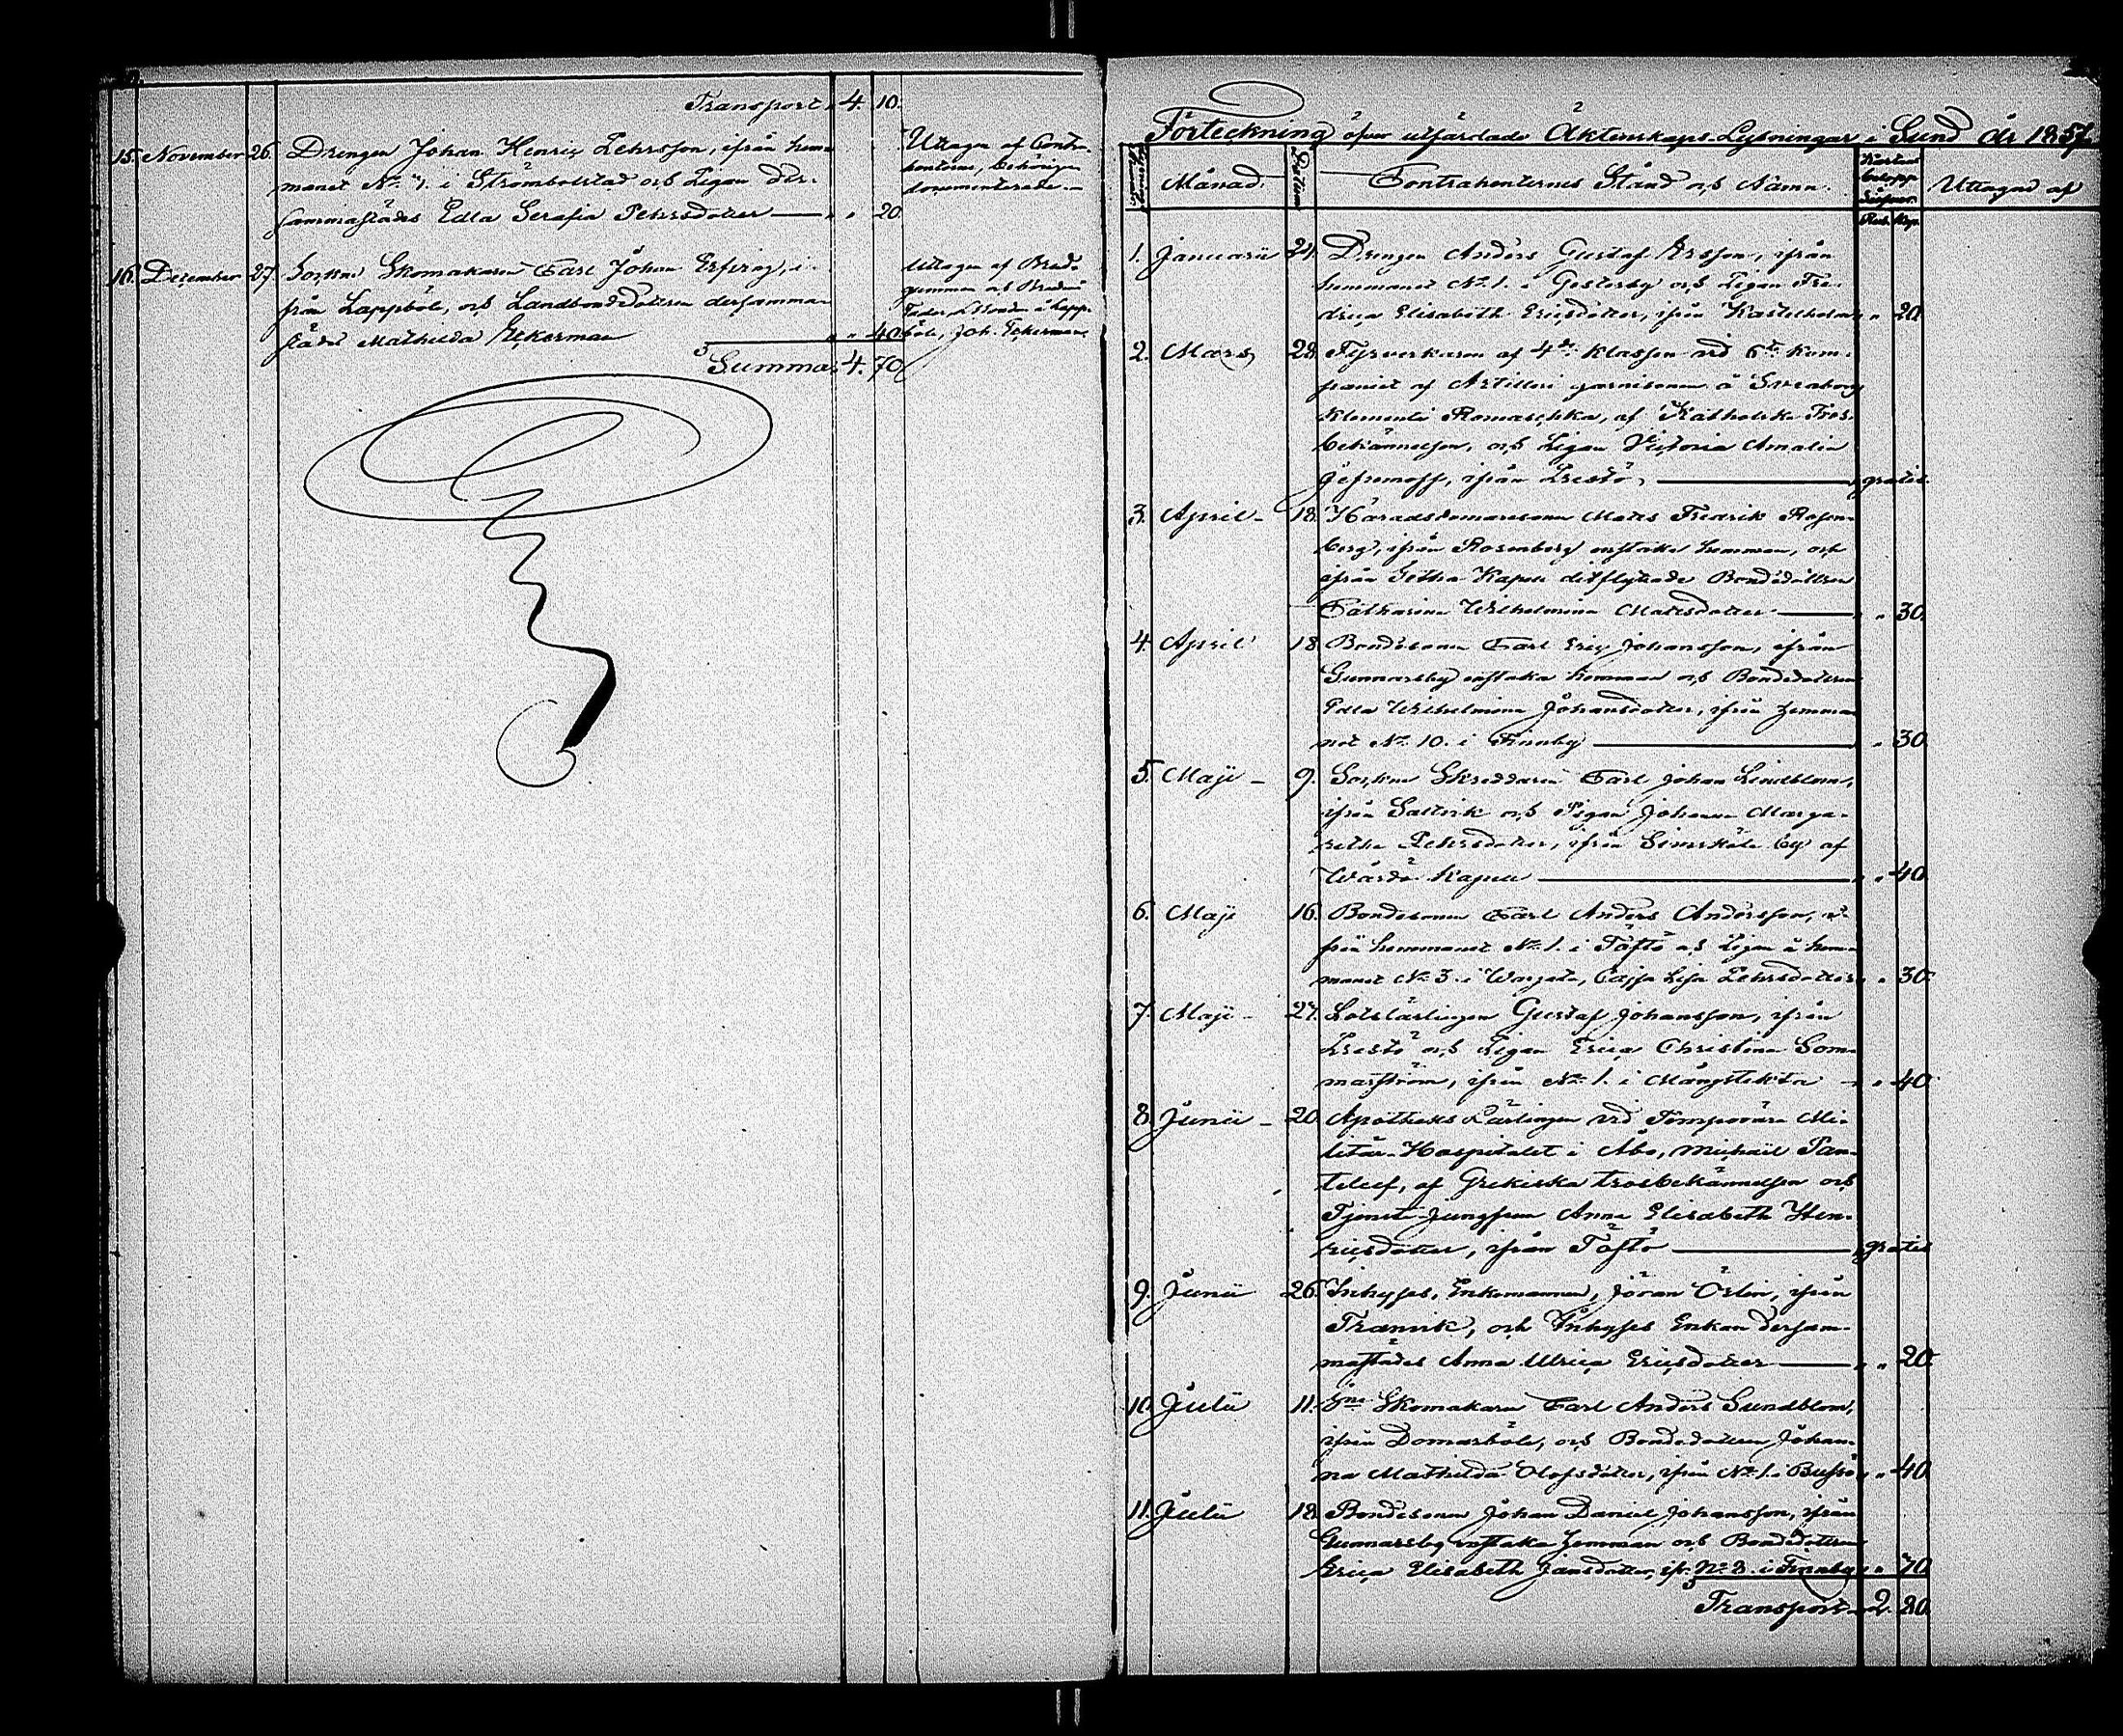 Transport 4. 10.
15. November 26. Drengen Johan Henric Pehrsson, ifrån hem-
manet No 1. i Strömbolstad och Pigan der-
sammastädes Edla Serafia Pehrsdotter — " 20.
Uttagen af Contra-
henterne, behörigen
documenterade. —
16. December 27. Sockne Skomakaren Carl Johan i-
från Lappböle, och Landbondedottren dersamma-
städes Mathilda Eckerman " " 40.
Uttagen af Brud-
gummen och Brudens
Fader, Bonden i Lapp-
böle, Joh. Eckerman.
Summa 4. 70.
Förteckning öfver utfärdade Äktenskaps-Lysningar i Sund år 1857.
Månad. Datum Contrahenternes Stånd och Namn. Uttagne af
Rub. Kop.
1. Januarii 24. Drengen Anders Gustaf Ersson, ifrån
hemmanet No 1. i Gesterby och Pigan Fre-
drica Elisabeth Ericsdotter, ifrån Kastelholm " 20.
2. Mars 28. Fyrverkaren af 4de klassen vid 6te kom-
paniet af Artilleri garnisonen å Sveaborg
Klementi Romaschka, af Katholska Tros-
bekännelsen, och Pigan Victoria Amalia
Jefremoff, ifrån Prestö, — gratis.
3. April — 18. Häradsdomaresonen Mats Fredrik Rosen-
berg, ifrån Rosenberg enstaka hemman, och
ifrån Getha Kapell ditflyttade Bondedottren
Catharina Wilhelmina Matsdotter — " 30.
4. April 18. Bondesonen Carl Eric Johansson, ifrån
Gunnarsby enstaka hemman och Bondedottren
Edla Wilhelmina Johansdotter, ifrån hemma-
net No 10. i Finnby — " 30.
5. Maji — 9. Sockne Skreddaren Carl Johan Lindblom,
ifrån Saltvik och Pigan Johanna Marga-
retha Pehrsdotter, ifrån Simskäla by af
Wårdö Kapell — " " 40.
6. Maji 16. Bondesonen Carl Anders Andersson, i-
från hemmanet No 1. i Töftö och Pigan å hem-
manet No 3. i Wargata, Cajsa Lisa Pehrsdotter " " 30.
7. Maji — 27. Lotslärlingen Gustaf Johansson, ifrån
Prestö och Pigan Erica Christina Som-
marström, ifrån No 1. i Mångstekta — " 40.
8. Junii — 20. Apotheks Lärlingen vid Temporära Mi-
litär-Hospitalet i Åbo, Michail Pan-
teleef, af Grekiska trosbekännelsen och
Tjenste-Jungfrun Anna Elisabeth Hen-
ricsdotter, ifrån Töftö — gratis
9. Junii 26. Inhyses, Enkemannen, Jöran Östlin, ifrån
Tranvik, och Inhyses Enkan dersam-
mastädes Anna Ulrica Ericsdotter — " " 20.
10. Julii 11. Sne Skomakaren Carl Anders Sundblom,
ifrån Domarböle, och Bondedottren Johan-
na Mathilda Olofsdotter, ifrån No 1. i Bussö " " 40.
11. Julii 18. Bondesonen Johan Daniel Johansson, ifrån
Gunnarsby enstaka hemman och Bondedottren
Erica Elisabeth Jansdotter, ifr. No 3. i Finnby " " 70.
Transport 2. 80.